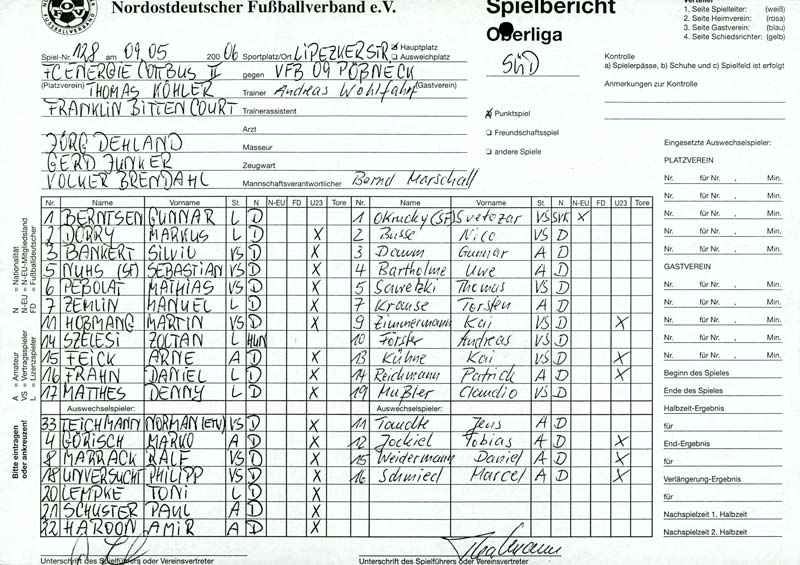 Nordostdeutscher Fußballverband e.V.
Spielbericht
Oberliga
Süd
Verteiler
1. Seite Spielleiter: (weiß)
2. Seite Heimverein: (rosa)
3. Seite Gastverein: (blau)
4. Seite Schiedsrichter: (gelb)
Spiel-Nr. 128 am 09.05 2006 Sportplatz/Ort LIPEZKERSTR Hauptplatz
Ausweichplatz
FC ENERGIE COTTBUS II gegen VFB 09 PÖßNECK
(Platzverein) THOMAS KÖHLER Trainer Andreas Wohlfahrt (Gastverein)
FRANKLIN BITTENCOURT Trainerassistent
Arzt
JÖRG DEHLAND Masseur
GERD JUNKER Zeugwart
VOLKER BRENDAHL Mannschaftsverantwortlicher Bernd Marschall
X Punktspiel
Freundschaftsspiel
andere Spiele
Kontrolle
a) Spielerpässe, b) Schuhe und c) Spielfeld ist erfolgt
Anmerkungen zur Kontrolle
Nr. Name Vorname St. N N-EU FD U23 Tore Nr. Name Vorname St. N N-EU FD U23 Tore
1 BERNTSEN GUNNAR L D 1 Okrucky (SF) Svetozar VS SVK X
2 DORRY MARKUS L D X 2 Buße Nico VS D
3 BANKERT SILVIO VS D X 3 Daum Gunnar A D
5 NUHS (SF) SEBASTIAN VS D X 4 Bartholme Uwe A D
6 PEBOLAT MATHIAS VS D X 5 Sawetzki Thomas VS D
7 ZEMLIN MANUEL L D X 7 Krause Torsten A D
11 HOßMANG MARTIN VS D X 9 Zimmermann Kai VS D X
14 SZELESI ZOLTAN L HUN 10 Förster Andreas VS D
15 FEICK ARNE A D X 13 Kühne Kai VS D X
16 FRAHN DANIEL L D X 14 Reichmann Patrick A D X
17 MATTHES DENNY L D X 19 Mußler Claudio VS D
Auswechselspieler: Auswechselspieler:
33 TEICHMANN NORMAN (ETW) VS D X 11 Taudte Jens A D
4 GÖRISCH MARKO A D X 12 Jockiel Tobias A D
8 MARRACK RALF VS D X 15 Weidermann Daniel A D X
18 UNVERSUCHT PHILIPP VS D X 16 Schmied Marcel A D X
20 LEMPKE TONI L D X
21 SCHUSTER PAUL A D X
22 HAROON AMIR A D X
Unterschrift des Spielführers oder Vereinsvertreter Unterschrift des Spielführers oder Vereinsvertreter
N = Nationalität
N-EU = N-EU-Mitgliedsland
FD = Fußballdeutscher
A = Amateur
VS = Vertragsspieler
L = Lizenzspieler
Bitte eintragen
oder ankreuzen!
Eingesetzte Auswechselspieler:
PLATZVEREIN
Nr. für Nr. , Min.
Nr. für Nr. , Min.
Nr. für Nr. , Min.
Nr. für Nr. , Min.
GASTVEREIN
Nr. für Nr. , Min.
Nr. für Nr. , Min.
Nr. für Nr. , Min.
Nr. für Nr. , Min.
Beginn des Spieles
Ende des Spieles
Halbzeit-Ergebnis
für
End-Ergebnis
für
Verlängerung-Ergebnis
für
Nachspielzeit 1. Halbzeit
Nachspielzeit 2. Halbzeit